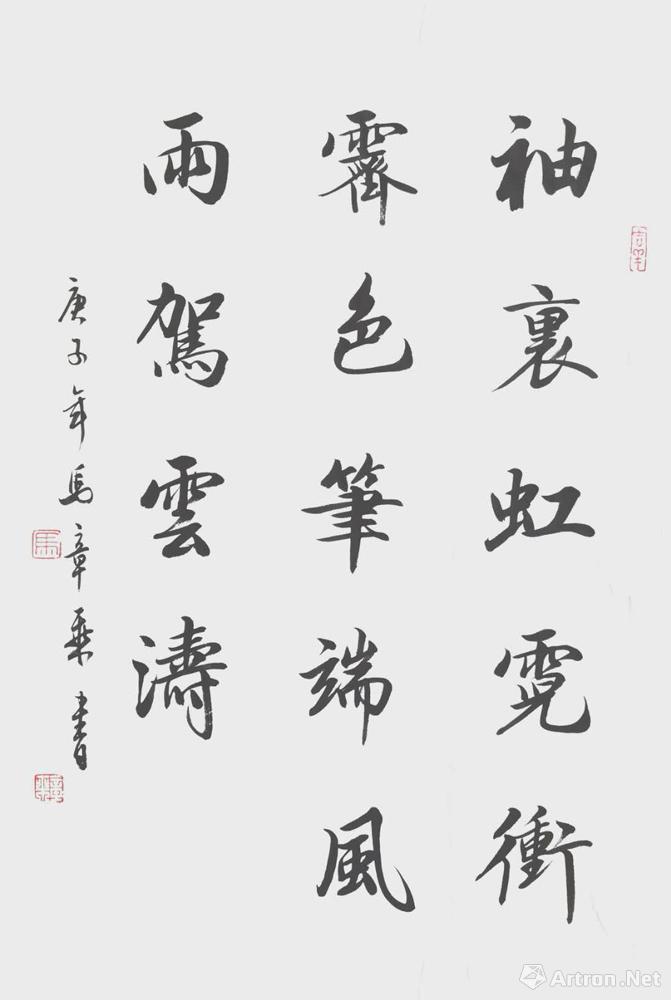 袖裏虹霓衝
霽色筆端風
雨駕雲濤
庚子年馬章乘書
馬
Artron.Net